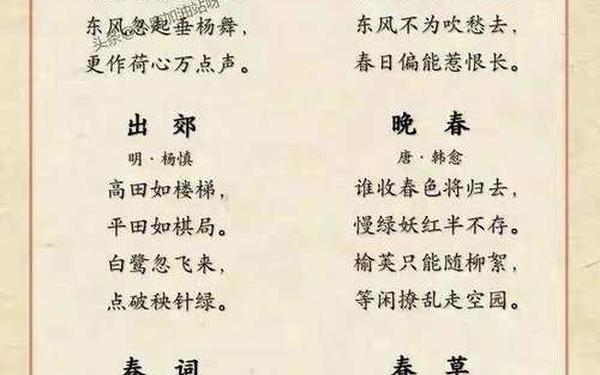 东风忽起垂杨舞，
更作荷心万点声。
东风不为吹愁去，
春日偏能惹恨长。
出郊
明·杨慎
高田如楼梯，
平田如棋局。
白鹭忽飞来，
点破秧针绿。
晚春
唐·韩愈
谁收春色将归去，
慢绿妖红半不存。
榆荚只能随柳絮，
等闲撩乱走空园。
春词
春草